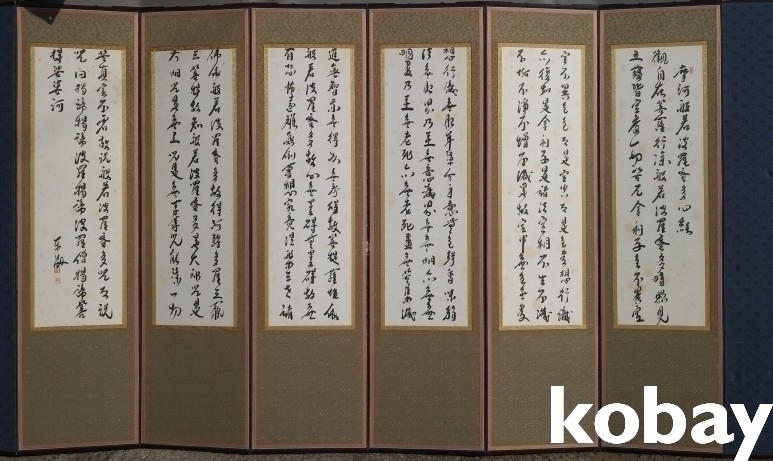 摩河般若波羅蜜多心經
觀自在菩薩行深般若波羅蜜多時照見
五蘊皆空度一切苦厄舍利子色不異空
空不異色色卽是空空卽是色受想行識
亦復如是舍利子是諸法空相不生不滅
不垢不淨不增不減是故空中無色無受
想行識無眼耳鼻舌身意無色聲香味觸
法無眼界乃至無意識界無無明亦無無
明盡乃至無老死亦無老死盡無苦集滅
道無智亦無得以無所得故菩提薩埵依
般若波羅蜜多故心無罣碍無罣碍故無
有恐怖遠離顚倒夢想究竟涅槃三世諸
佛依般若波羅蜜多故得阿耨多羅三藐
三菩提故知般若波羅蜜多是大神呪是
大明呪是無上呪是無等等呪能除一切
苦眞實不虛故說般若波羅蜜多呪卽說
呪曰揭諦揭諦波羅揭諦波羅僧揭諦菩
提娑婆訶
kobay